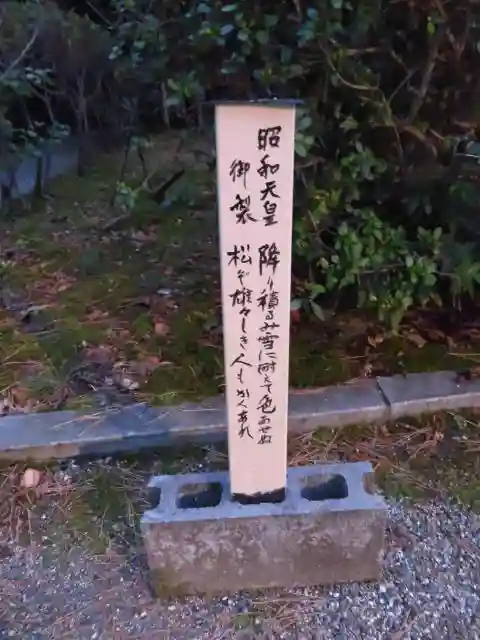 昭和天皇 降り積るみ雪に耐えて色あせぬ
御製 松ぞ雄々しき人もかくあれ